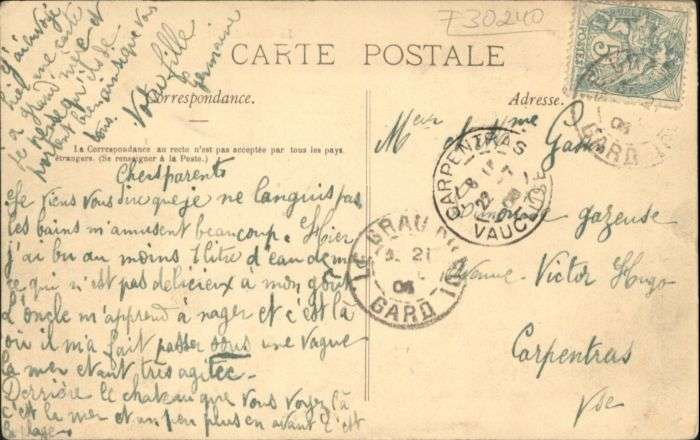 730240
J'ai envoyé
hier une carte
a grand mère et
je pense qu'ils se
portent bien ainsi que vous
tous. Votre fille
Germaine
CARTE POSTALE
Correspondance.
Adresse.
La Correspondance au recto n'est pas acceptée par tous les pays
étrangers. (Se renseigner à la Poste.)
Chers parents
Je viens vous dire que je ne languis pas
les bains m'amusent beaucoup. Hier
j'ai bu au moins 1 litre d'eau de mer
ce qui n'est pas délicieux à mon goût
L'oncle m'apprend à nager et c'est là
où il m'a fait passer sous une vague
la mer etant tres agitée.
Derrière le chateau que vous voyez là
c'est la mer et un peu plus en avant c'est
la plage.
Meur et Mme
gazeuse
Avenue Victor Hugo
Carpentras
Vse
CARPENTRAS
VAUCLUSE
LE GRAU DU ROI
21
06
GARD
5
06
GARD